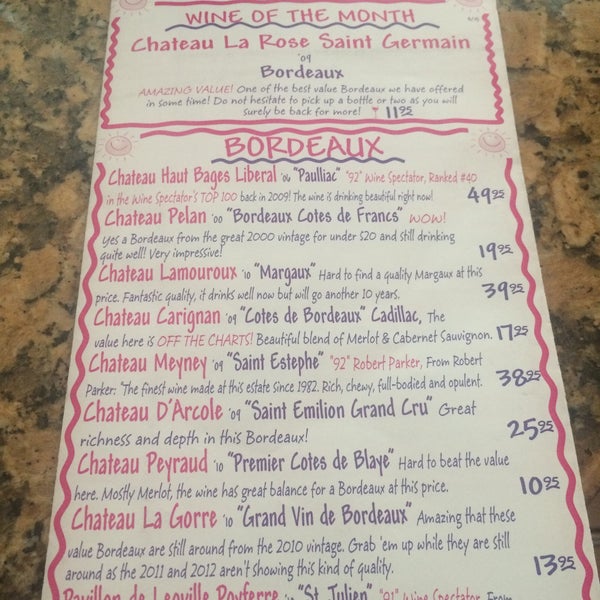 WINE OF THE MONTH
Chateau La Rose Saint Germain
'09
Bordeaux
AMAZING VALUE! One of the best value Bordeaux we have offered
in some time! Do not hesitate to pick up a bottle or two as you will
surely be back for more! 11.95
BORDEAUX
Chateau Haut Bages Liberal '06 "Paulliac" "92" Wine Spectator, Ranked #40
in the Wine Spectator's TOP 100 back in 2009! The wine is drinking beautiful right now! 49.95
Chateau Pelan '00 "Bordeaux Cotes de Francs" WOW!
Yes a Bordeaux from the great 2000 vintage for under $20 and still drinking
quite well! Very impressive! 19.95
Chateau Lamouroux '10 "Margaux" Hard to find a quality Margaux at this
price. Fantastic quality, it drinks well now but will go another 10 years. 39.95
Chateau Carignan '09 "Cotes de Bordeaux" Cadillac, The
value here is OFF THE CHARTS! Beautiful blend of Merlot & Cabernet Sauvignon. 17.25
Chateau Meyney '09 "Saint Estephe" "92" Robert Parker, From Robert
Parker: "The finest wine made at this estate since 1982. Rich, chewy, full-bodied and opulent. 38.95
Chateau D'Arcole '09 "Saint Emilion Grand Cru" Great
richness and depth in this Bordeaux! 25.95
Chateau Peyraud '10 "Premier Cotes de Blaye" Hard to beat the value
here. Mostly Merlot, the wine has great balance for a Bordeaux at this price. 10.95
Chateau La Gorre '10 "Grand Vin de Bordeaux" Amazing that these
value Bordeaux are still around from the 2010 vintage. Grab 'em up while they are still
around as the 2011 and 2012 aren't showing this kind of quality. 13.95
Pavillon de Leoville Poyferre "St. Julien" "91" Wine Spectator, From